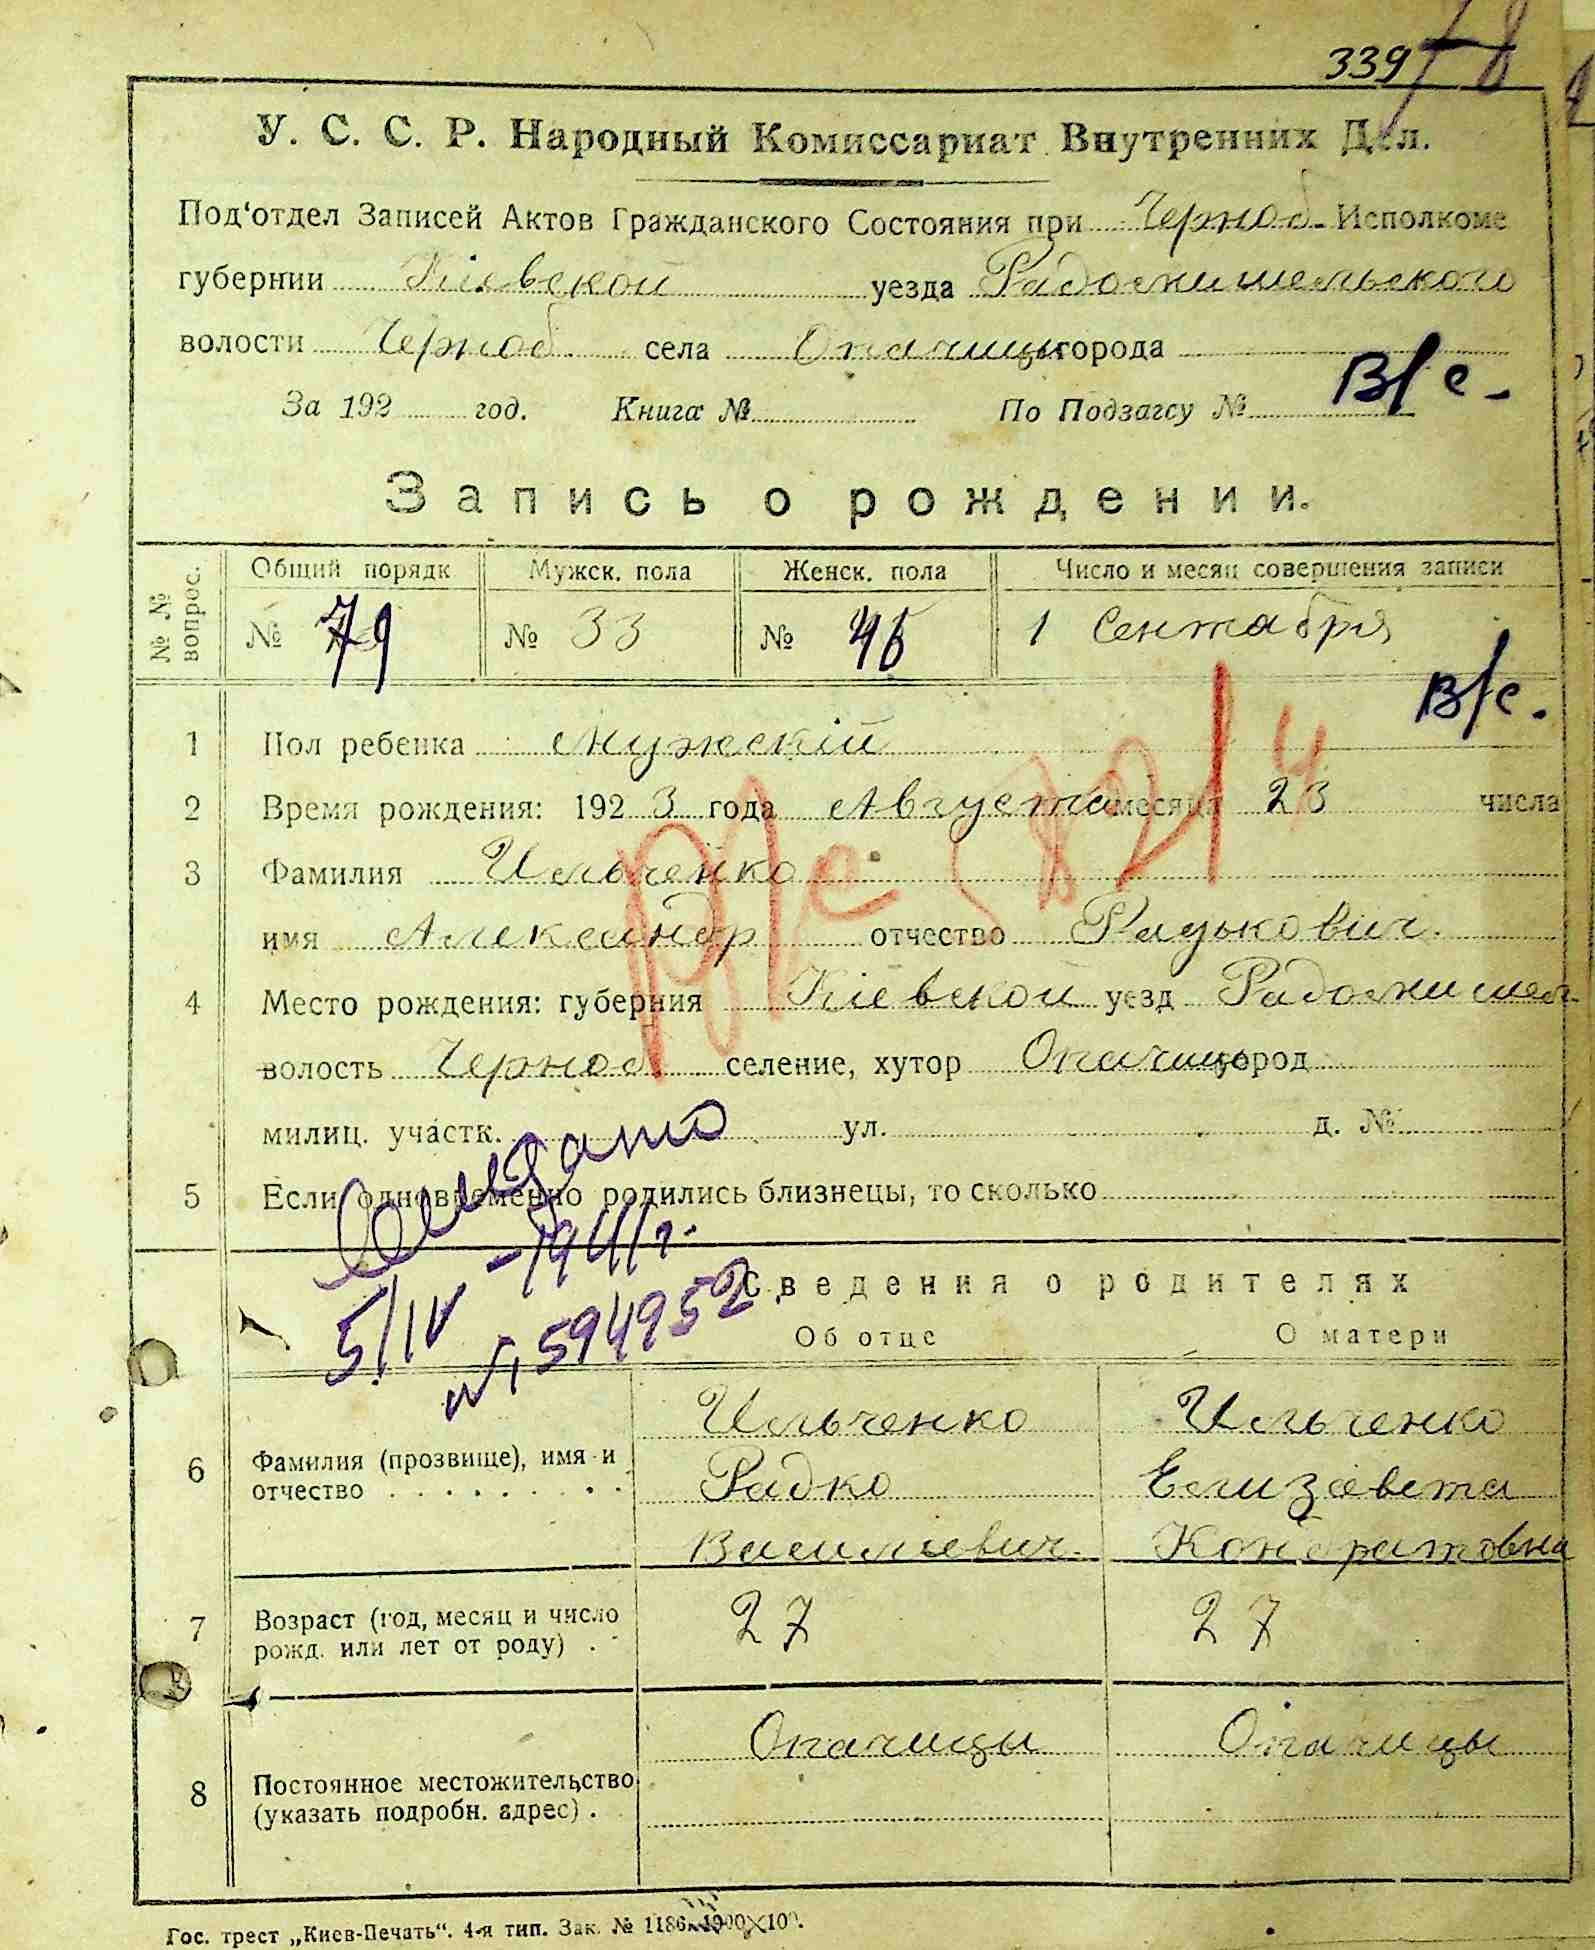 339 78
У. С. С. Р. Народный Комиссариат Внутренних Дел.
Под'отдел Записей Актов Гражданского Состояния при Черноб. Исполкоме
губернии Кіевской уезда Радомишельского
волости Черноб. села Опачицы города
За 192 год. Книга № По Подзагсу № В/с.
Запись о рождении.
№ № вопрос. Общий порядк Мужск. пола Женск. пола Число и месяц совершения записи
№ 79 № 33 № 46 1 Сентября
В/с.
1 Пол ребенка Мужскій
2 Время рождения: 1923 года Августа месяца 23 числа
3 Фамилия Ильченко
имя Александр отчество Радькович.
4 Место рождения: губерния Кіевской уезд Радомишел.
волость Черноб. селение, хутор Опачицы город
милиц. участк. ул. д. №
5 Если одновременно родились близнецы, то сколько
5/IV - 1941 г.
№ 594952
Сведения о родителях
Об отце О матери
6 Фамилия (прозвище), имя и отчество
Ильченко Ильченко
Радко Елизавета
Васильевич. Кондратовна
7 Возраст (год, месяц и число рожд. или лет от роду) 27 27
Опачицы Опачицы
8 Постоянное местожительство
(указать подробн. адрес)
Гос. трест „Киев-Печать“. 4-я тип. Зак. № 1186